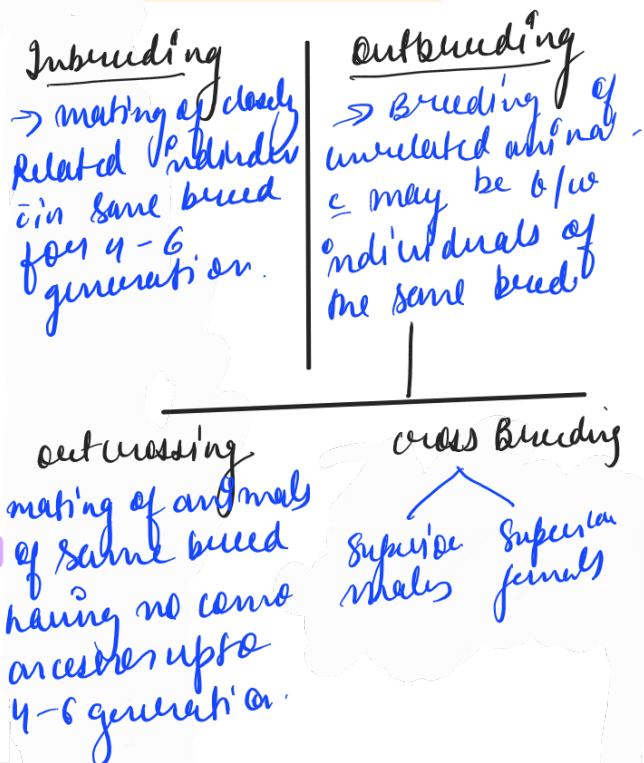 Inbreeding
→ mating of closely
Related individer
in same breed
for 4-6
generation.
Outbreeding
→ Breeding of
unrelated animal
may be b/w
individuals of
the same breed
outcrossing
mating of animals
of same breed
having no como
ancestres upto
4-6 generation.
cross Breeding
Superior
males
Superior
femals